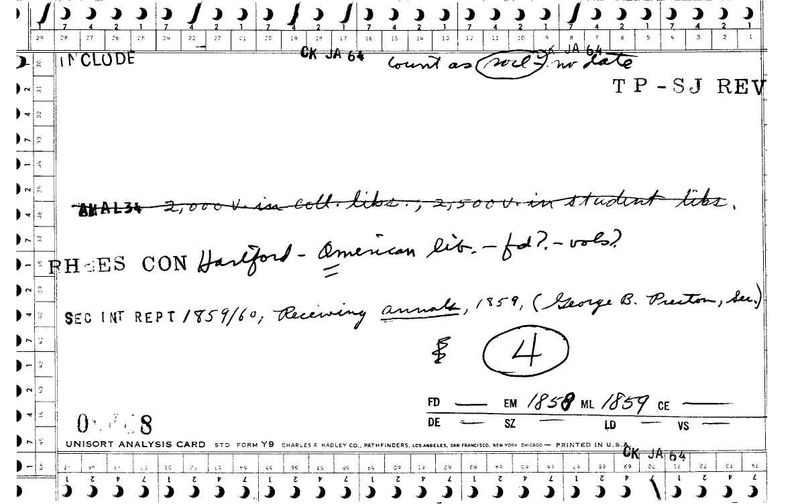 CK JA 64 CK JA 64
INCLUDE Count as socl - no date
TP-SJ REV
AHAL34 2,000 v. in coll. libs., 2,500 v. in student libs.
RHEES CON Hartford - American lib. - fd? - vols?
SEC INT REPT 1859/60, Receiving annals, 1859, (George B. Preston, Sec.)
$ 4
FD — EM 1858 ML 1859 CE —
DE — SZ LD — VS —
0 8
UNISORT ANALYSIS CARD STD FORM Y9 CHARLES R. HADLEY CO., PATHFINDERS, LOS ANGELES, SAN FRANCISCO, NEW YORK CHICAGO — PRINTED IN U.S.A.
CK JA 64